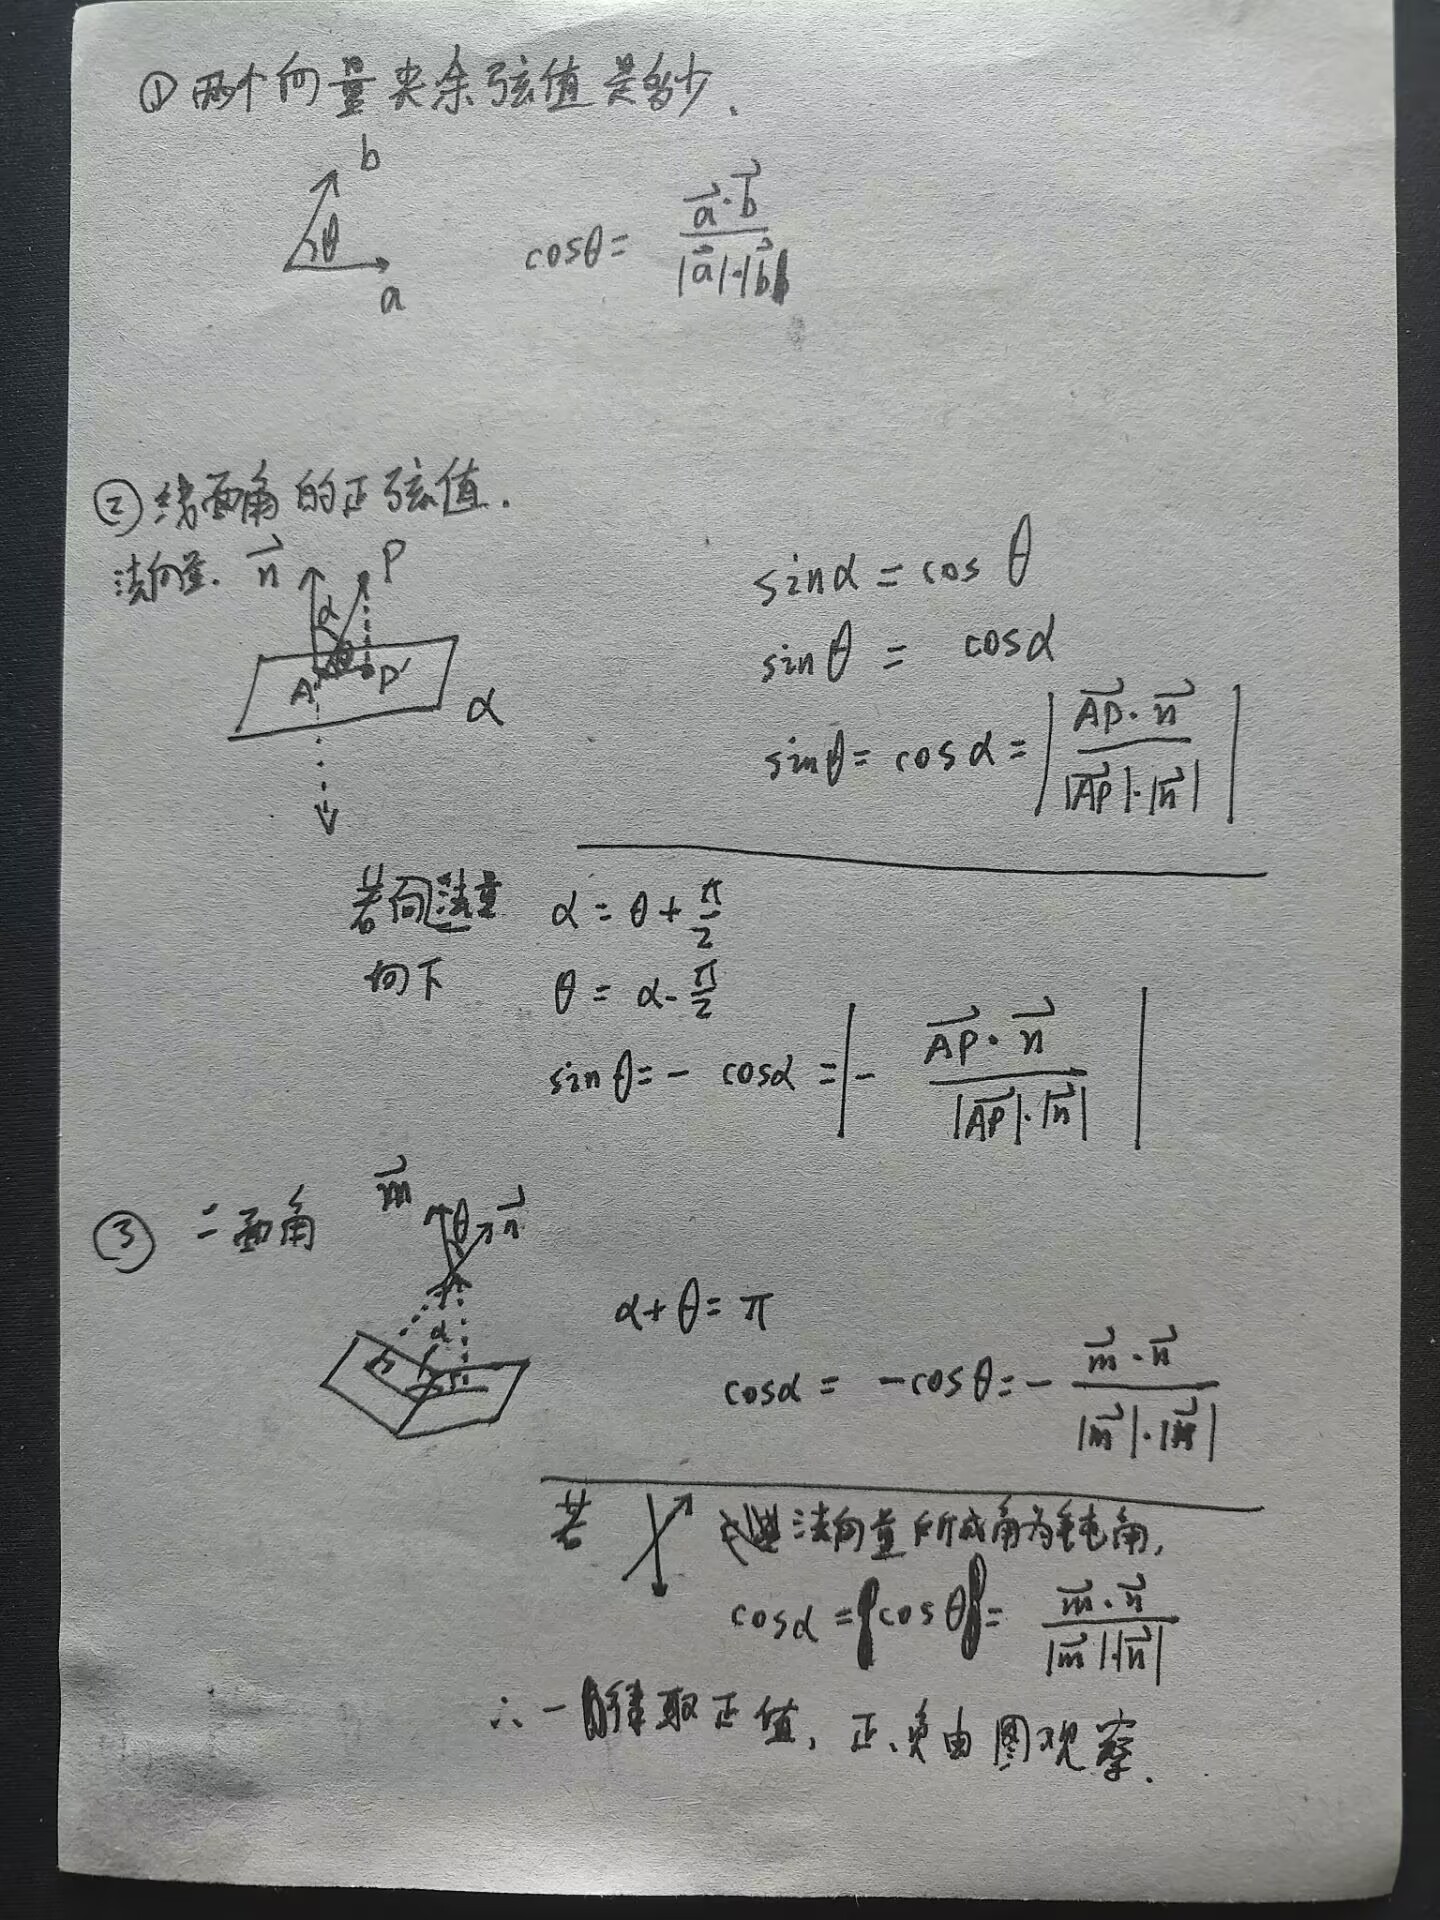 ① 两个向量夹余弦值是多少.
b
θ
a
cosθ = a⃗·b⃗ / |a⃗|·|b⃗|
② 线面角的正弦值.
法向量. n⃗ P
α
θ
A P′
α
sinα = cos θ
sinθ = cosα
sinθ = cosα = | AP⃗·n⃗ / |AP⃗|·|n⃗| |
若法向量 α = θ + π/2
向下 θ = α - π/2
sinθ = - cosα = | - AP⃗·n⃗ / |AP⃗|·|n⃗| |
③ 二面角 m⃗ θ n⃗
α
α + θ = π
cosα = -cosθ = - m⃗·n⃗ / |m⃗|·|n⃗|
若 法向量所成角为钝角,
cosα = cosθ = m⃗·n⃗ / |m⃗|·|n⃗|
∴ 一律取正值, 正、负由图观察.